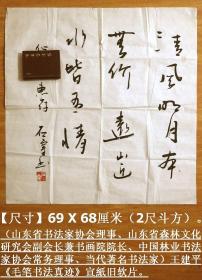 清風明月本
無价遠山近
水皆有情
惠存
【尺寸】69 X 68厘米（2尺斗方）。
（山东省书法家协会理事、山东省森林文化
研究会副会长兼书画院院长、中国林业书法
家协会常务理事、当代著名书法家）王建平
《毛笔书法真迹》宣紙旧软片。